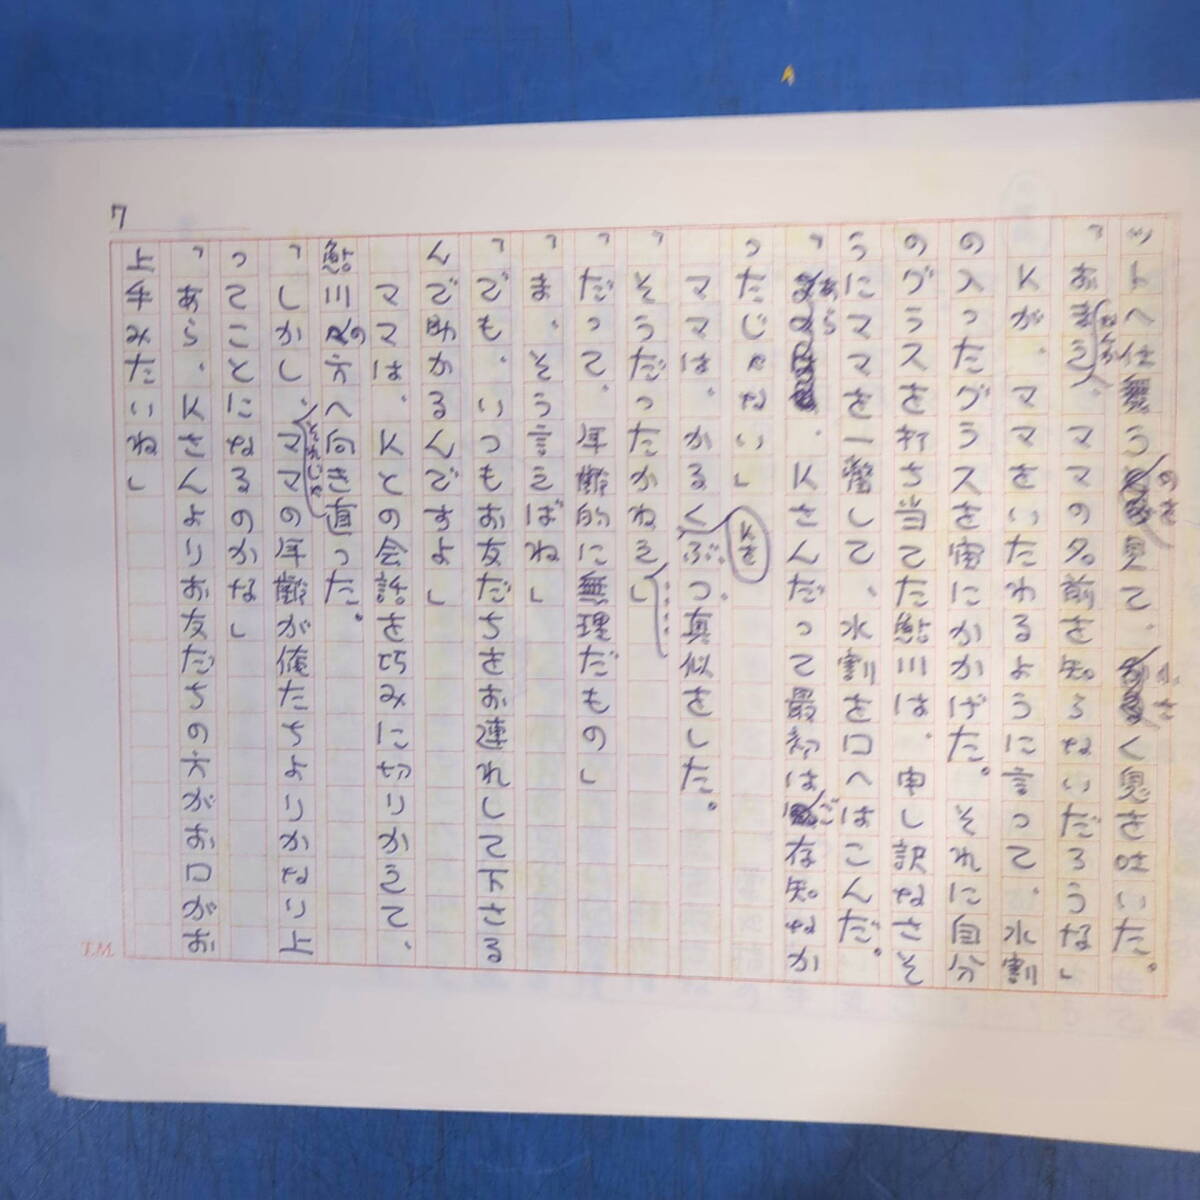 7
ットへ仕舞うのを見て、小さく息を吐いた。
「おまえ、ママの名前を知らないだろうな」
Kが、ママをいたわるように言って、水割
の入ったグラスを宙にかかげた。それに自分
のグラスを打ち当てた鮎川は、申し訳なさそ
うにママを一瞥して、水割を口へはこんだ。
「あら、Kさんだって最初はご存知なか
ったじゃない」
ママは、かるくKをぶつ真似をした。
「そうだったかねえ……」
「だって、年齢的に無理だもの」
「ま、そう言えばね」
「でも、いつもお友だちをお連れして下さる
んで助かるんですよ」
ママは、Kとの会話を巧みに切りかえて、
鮎川の方へ向き直った。
「しかし、それじゃママの年齢が俺たちよりかなり上
ってことになるのかな」
「あら、Kさんよりお友だちの方がお口がお
上手みたいね」
T.M